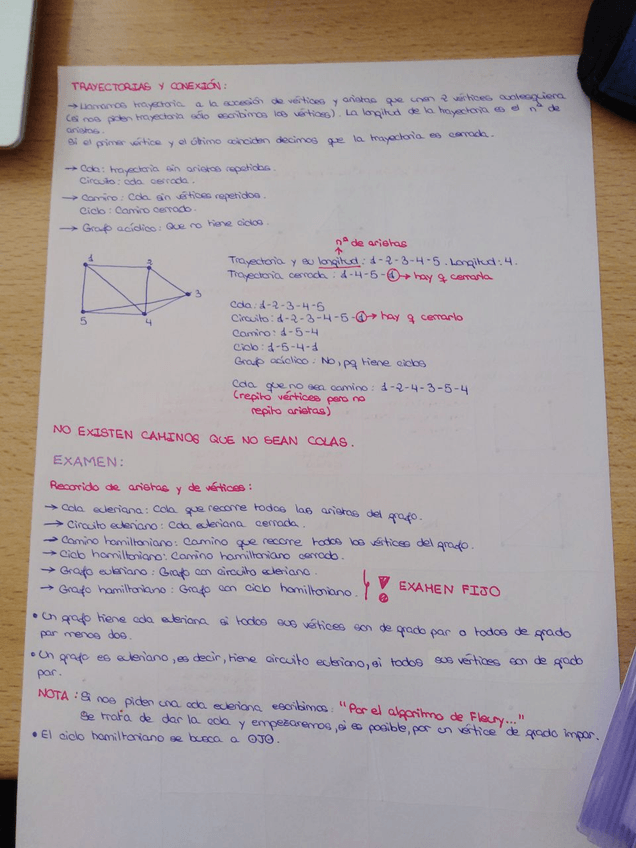 TRAYECTORIAS Y CONEXIÓN:
→ Llamamos trayectoria a la sucesión de vértices y aristas que unen 2 vértices cualesquiera
(si nos piden trayectoria sólo escribimos los vértices). La longitud de la trayectoria es el nº de
aristas.
Si el primer vértice y el último coinciden decimos que la trayectoria es cerrada.
→ Cola: trayectoria sin aristas repetidas.
Circuito: cola cerrada.
→ Camino: Cola sin vértices repetidos.
Ciclo: Camino cerrado.
→ Grafo acíclico: Que no tiene ciclos.
1
2
3
4
5
nº de aristas
↑
Trayectoria y su longitud: 1-2-3-4-5. Longitud: 4.
Trayectoria cerrada: 1-4-5-1 → hay q cerrarla
Cola: 1-2-3-4-5
Circuito: 1-2-3-4-5-1 → hay q cerrarlo
Camino: 1-5-4
Ciclo: 1-5-4-1
Grafo acíclico: No, pq tiene ciclos
Cola que no sea camino: 1-2-4-3-5-4
(repito vértices pero no
repito aristas)
NO EXISTEN CAMINOS QUE NO SEAN COLAS.
EXAMEN:
Recorrido de aristas y de vértices:
→ Cola euleriana: Cola que recorre todos las aristas del grafo.
→ Circuito euleriano: Cola euleriana cerrada.
→ Camino hamiltoniano: Camino que recorre todos los vértices del grafo.
→ Ciclo hamiltoniano: Camino hamiltoniano cerrado.
→ Grafo euleriano: Grafo con circuito euleriano.
→ Grafo hamiltoniano: Grafo con ciclo hamiltoniano.
! EXAMEN FIJO
• Un grafo tiene cola euleriana si todos sus vértices son de grado par o todos de grado
par menos dos.
• Un grafo es euleriano, es decir, tiene circuito euleriano, si todos sus vértices son de grado
par.
NOTA: Si nos piden una cola euleriana escribimos: "Por el algoritmo de Fleury..."
Se trata de dar la cola y empezaremos, si es posible, por un vértice de grado impar.
• El ciclo hamiltoniano se busca a OJO.